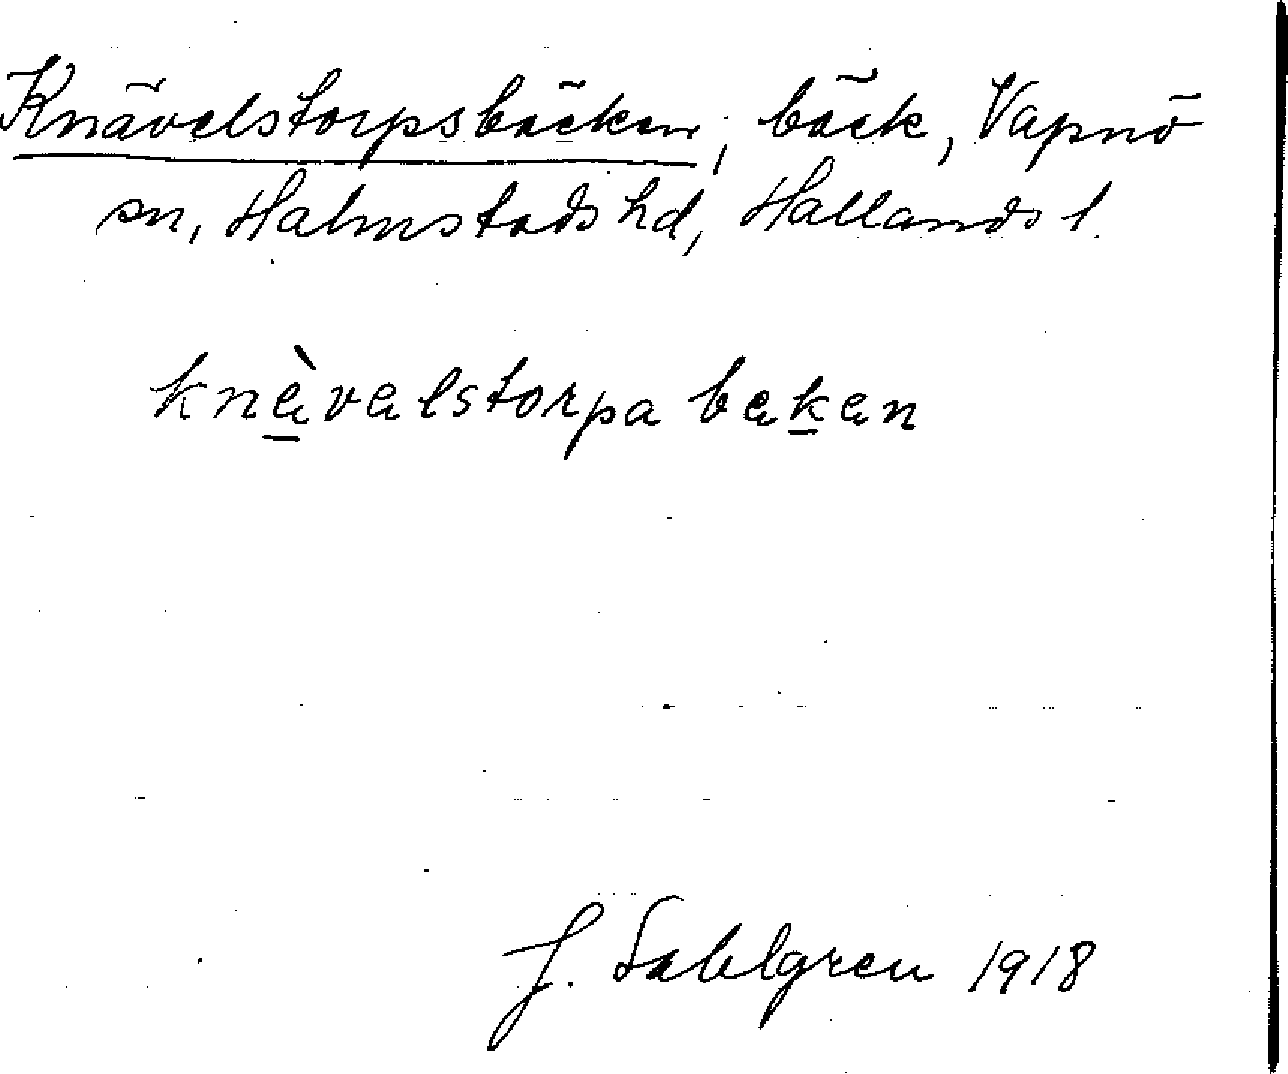 Knävelstorpsbäcken, bäck, Vapnö
sn, Halmstads hd, Hallands l.
knæ̀vəlstorpa bækən
J. Sahlgren 1918